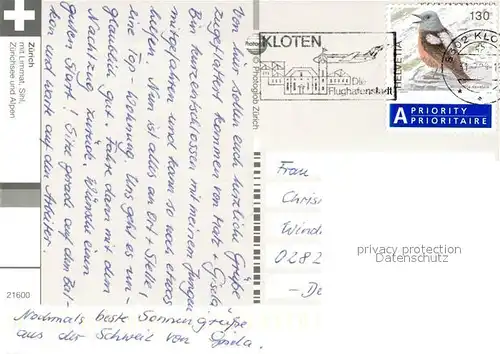 Zürich
mit Limmat, Sihl,
Zürichsee und Alpen
© Photoglob Zürich
21600
Von hier sollen euch herzliche Grüße
zugeflattert kommen von Franz + Gisela.
Bin kurzentschlossen mit meinem Jungen
mitgefahren und kann so noch etwas
helfen. Nun ist alles an Ort + Stelle!
Eine Top-Wohnung. Uns geht es un-
glaublich gut. Fahre dann mit dem
Nachtzug zurück. Wünsche einen
guten Start! Sitze gerade auf dem Bal-
kon und warte auf den Arbeiter.
Nochmals beste Sonnengrüße
aus der Schweiz von Gisela.
KLOTEN
Die
Flughafenstadt
8302 KLO
130
HELVETIA
A PRIORITY
PRIORITAIRE
Frau
Chris
Wind
0282
- De
privacy protection
Datenschutz